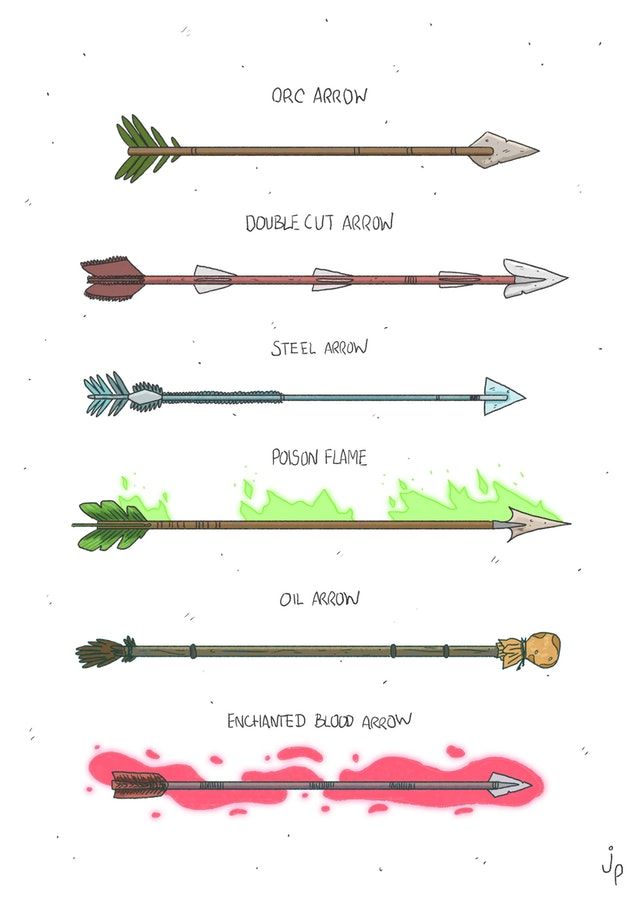 ORC ARROW
DOUBLE CUT ARROW
STEEL ARROW
POISON FLAME
OIL ARROW
ENCHANTED BLOOD ARROW
jp